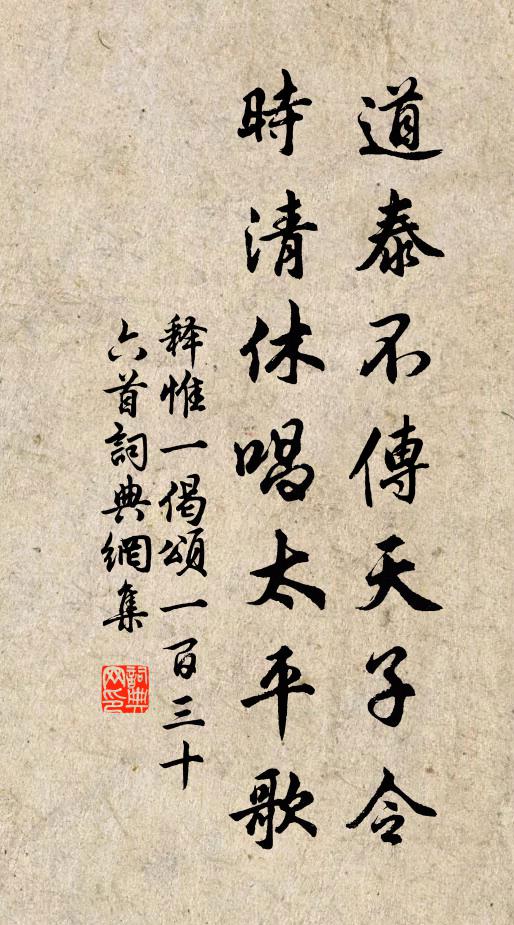 道泰不傳天子令
時清休唱太平歌
释惟一偈頌一百三十
六首詞典網集
詞典
网印